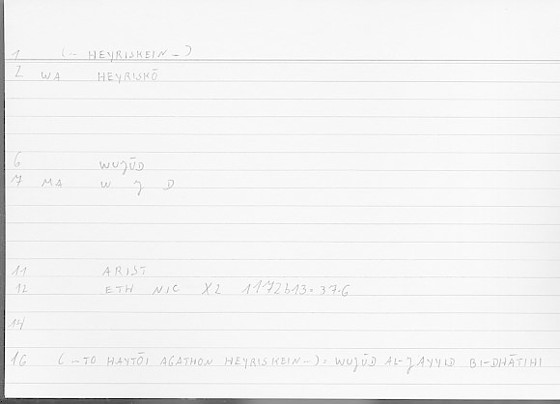 1 (– HEYRISKEIN –)
2 WA HEYRISKŌ
6 WUJŪD
7 MA W J D
11 ARIST
12 ETH NIC X2 1172b13 = 37.6
14
16 (– TO HAYTŌI AGATHON HEYRISKEIN –) = WUJŪD AL-JAYYID BI-DHĀTIHI